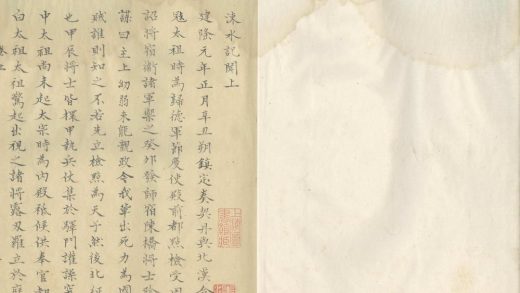 涑水記聞上
建隆元年正月辛丑朔鎮定奏契丹與北漢合
冦太祖時為歸德軍節度使殿前都點檢受周
詔將宿衛諸軍禦之癸卯發師宿陳橋將士陰
謀曰主上幼弱未能親政今我軰出死力為國
賊誰則知之不若先立檢點為天子然後北征
也甲辰將士皆擐甲執兵仗集於驛門讙譟突
中太祖尚未起太宗時為内殿祗候供奉官都
白太祖太祖驚起出視之諸將露刃羅立於庭